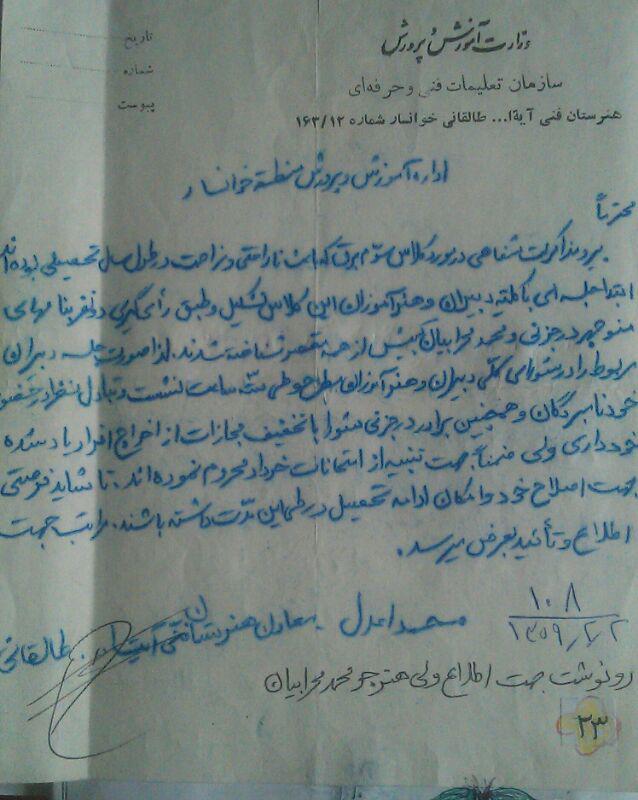 وزارت آموزش و پرورش
سازمان تعلیمات فنی و حرفه‌ای
هنرستان فنی آیة‌ا... طالقانی خوانسار شماره ۱۶۳/۱۲
تاریخ
شماره
پیوست
اداره آموزش و پرورش منطقه خوانسار
محترماً
پیرو مذاکرات شفاهی در مورد کلاس سوم برق که باعث ناراحتی و مزاحمت در طول سال تحصیلی بوده‌اند
ابتدا جلسه‌ای با کلیه دبیران و هنرآموزان این کلاس تشکیل و طبق رأی‌گیری دو نفر بنا مهای
منوچهر درجزنی و محمد محرابیان بیش از همه مقصر شناخته شدند. لذا صورت جلسه دبیران
مربوط را در شورای کلی دبیران و هنرآموزان مطرح و طی سه ساعت نشست و تبادل نظر در حضور
خود نامبردگان و همچنین برادر درجزنی شورا با تخفیف مجازات از اخراج افراد یاد شده
خودداری ولی ضمناً جهت تنبیه از امتحانات خرداد محروم نموده‌اند. تا شاید فرصتی
جهت اصلاح خود و امکان ادامه تحصیل در طی این مدت داشته باشند. مراتب جهت
اطلاع و تأئید بعرض میرسد.
۱۰۸
۱۳۵۹/۲/۲
معاون هنرستان فنی آیت ا... طالقانی
رونوشت جهت اطلاع ولی هنرجو محمد محرابیان
۲۳